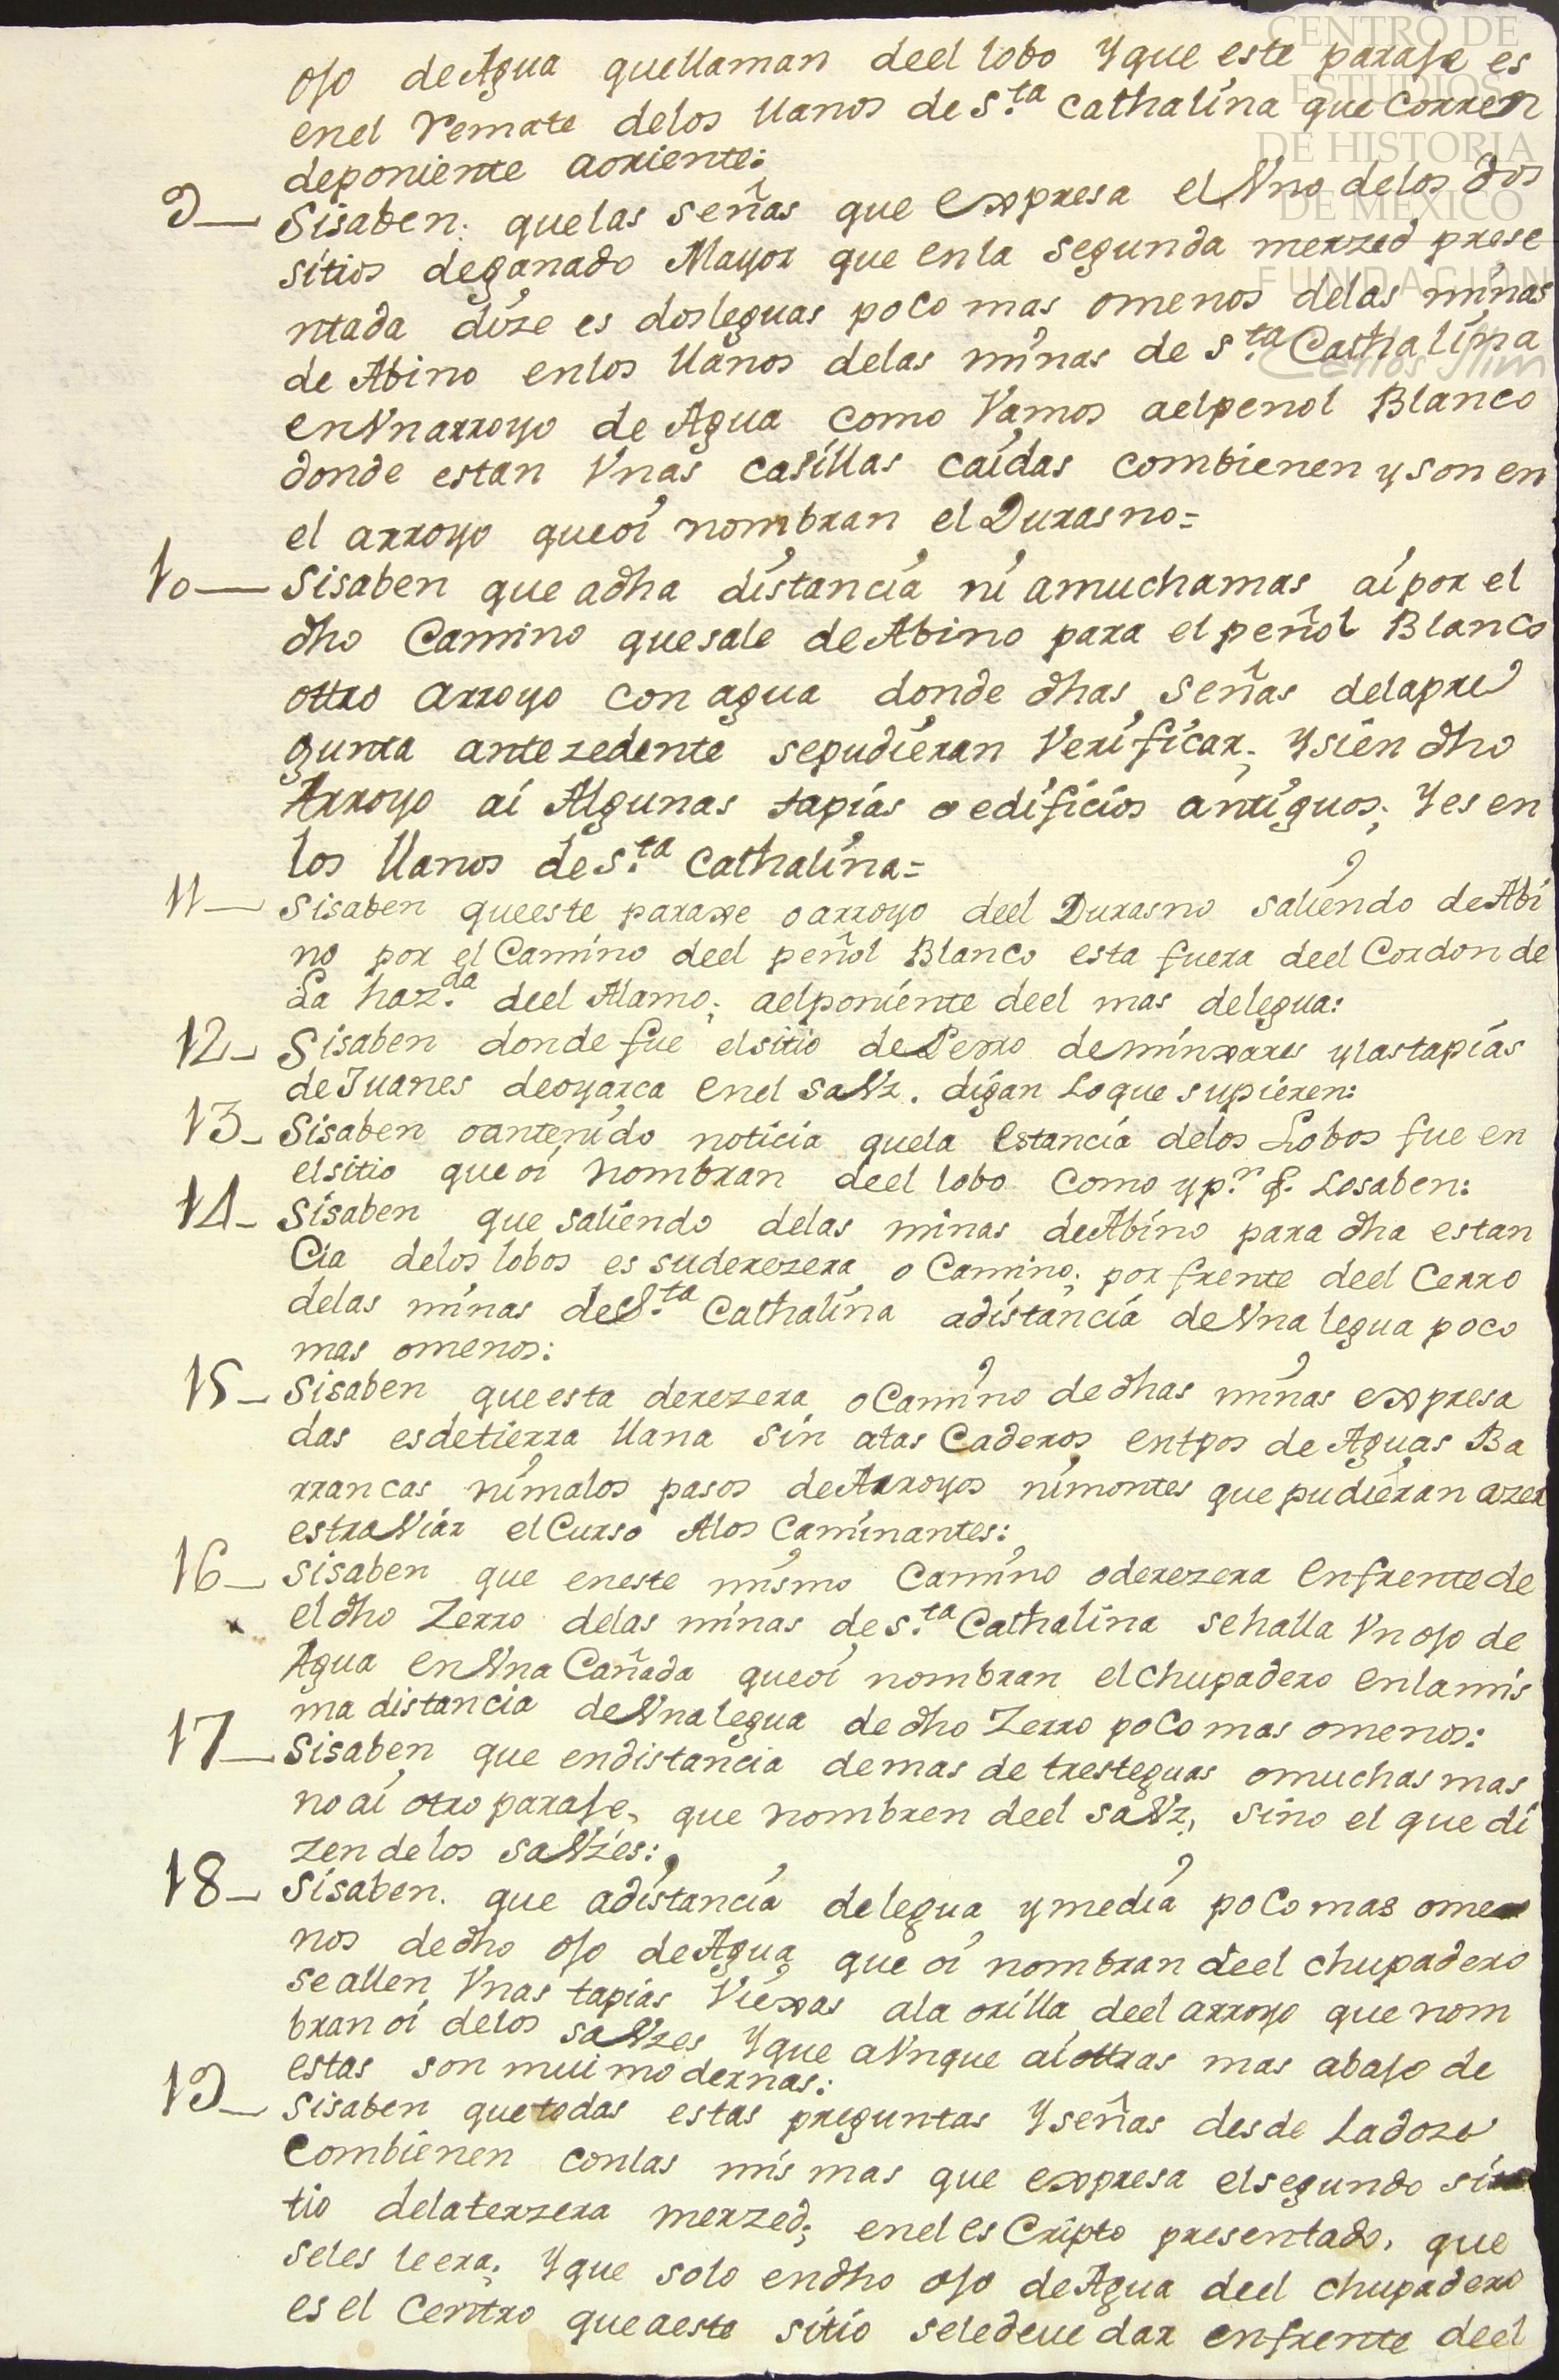 ojo de Agua que llaman deel lobo Y que este paraje es
enel remate delos llanos de S.ta Cathalina que Corren
deponiente aoriente:
9— Sisaben. quelas señas que expresa el Vno delos dos
sitios deganado Mayor que enla segunda merzed prese
ntada dize es dosleguas poco mas omenos delas minas
de Abino enlos llanos delas minas de S.ta Cathalina
enVnarroyo de Agua como Vamos aelpenol Blanco
donde estan Vnas casillas caidas combienen y son en
el arroyo queoi nombran el Durasno=
10— Sisaben que adha distancia ni amuchamas ai por el
dho Camino quesale deAbino para el peñol Blanco
ottro arroyo con agua donde dhas señas delapre
gunta antezedente sepudieran Verificar. Ysien dho
Arroyo ai Algunas tapias o edificios antiguos; Yes en
los llanos deS.ta Cathalina=
11— Sisaben queeste paraxe oarroyo deel Durasno saliendo deAbi
no por el Camino deel peñol Blanco esta fuera deel Cordon de
La haz.da deel Alamo; aelponiente deel mas delegua:
12— Sisaben donde fue elsitio dePerro deminxares ylastapias
deJuanes deoyarca enel saVz. digan Loque supieren:
13— Sisaben oantenido noticia quela Estancia delos Lobos fue en
elsitio queoi nombran deel lobo como y p.r q. Losaben:
14— Sisaben que saliendo delas minas deAbino para dha estan
Cia delos lobos es suderezera o Camino; por frente deel Cerro
delas minas deS.ta Cathalina adistancia deVna legua poco
mas omenos:
15— Sisaben queesta derezera oCamino dedhas minas expresa
das esdetierra llana sin atas Caderos entpos de Aguas Ba
rrancas nimalos pasos deArroyos nimontes que pudieran azer
estraViar el Curso Alos Caminantes:
16— Sisaben que eneste mismo Camino oderezera Enfrente de
el dho Zerro delas minas de S.ta Cathalina sehalla Vn ojo de
Agua enVna Cañada queoi nombran elchupadero enlamis
ma distancia deVnalegua de dho Zerro poco mas omenos:
17— Sisaben que endistancia demas de tresleguas omuchas mas
noai otro paraje, que nombren deel saVz, sino el que di
zen delos saVzes:
18— Sisaben. que adistancia delegua ymedia poco mas ome
nos dedho ojo deAgua que oi nombran deel chupadero
seallen Vnas tapias Viexas ala orilla deel arroyo que nom
bran oi delos saVzes Yque aVnque aiottras mas abajo de
estas son mui modernas:
19— Sisaben quetodas estas preguntas Yseñas desde Ladoze
Combienen conlas mis mas que expresa elsegundo si
tio delaterzera merzed; enel esCripto presentado, que
seles leera; Yque solo endho ojo deAgua deel chupadero
es el Centro queaeste sitio seledeue dar enfrente deel
CENTRO DE
ESTUDIOS
DE HISTORIA
DE MÉXICO
FUNDACIÓN
Carlos Slim